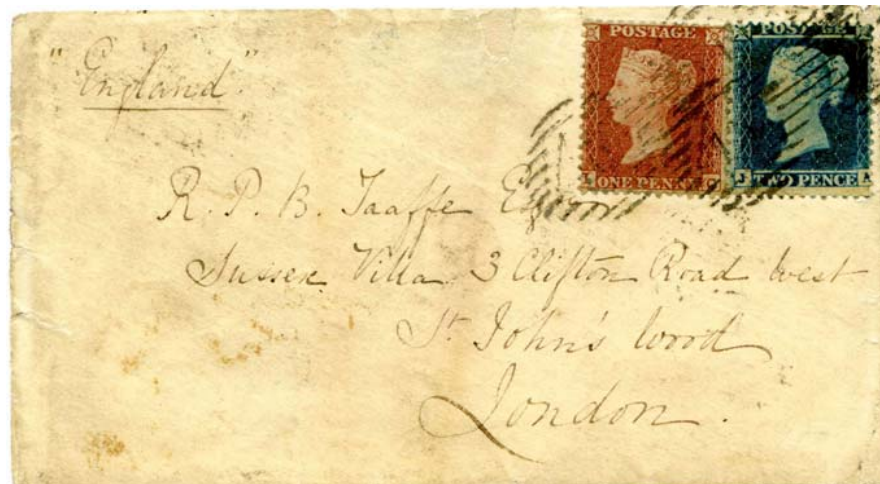 "England"
POSTAGE
ONE PENNY
POSTAGE
J TWO PENCE A
R. P. B. Taaffe
Sussex Villa 3 Clifton Road West
St. John's Wood
London.